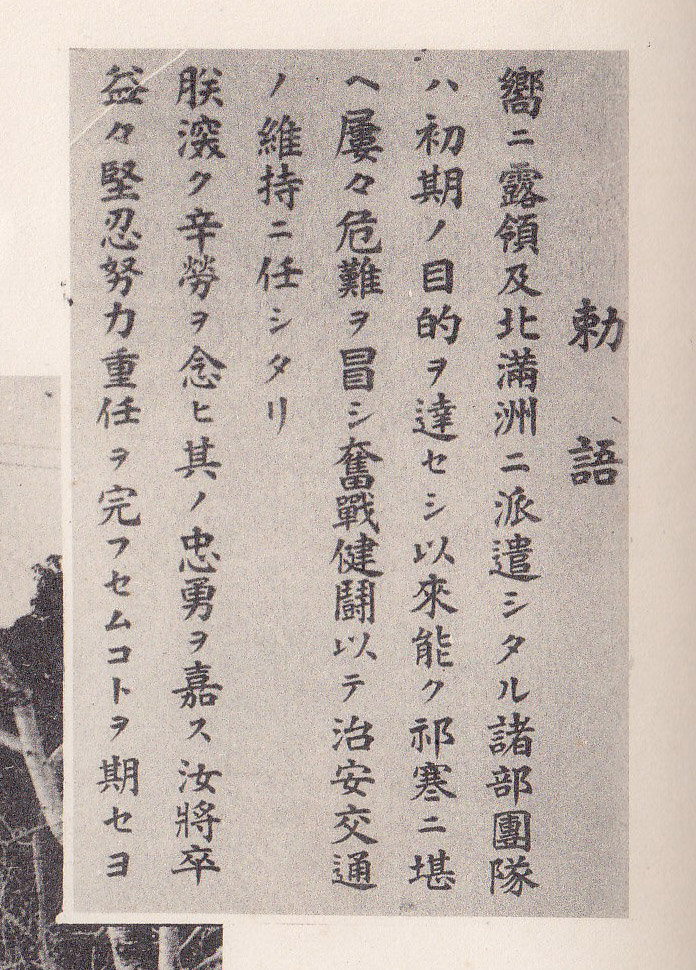 勅語
嚮ニ露領及北滿洲ニ派遣シタル諸部團隊
ハ初期ノ目的ヲ達セシ以來能ク祁寒ニ堪
ヘ屢々危難ヲ冒シ奮戰健鬪以テ治安交通
ノ維持ニ任シタリ
朕深ク辛勞ヲ念ヒ其ノ忠勇ヲ嘉ス汝將卒
益々堅忍努力重任ヲ完フセムコトヲ期セヨ